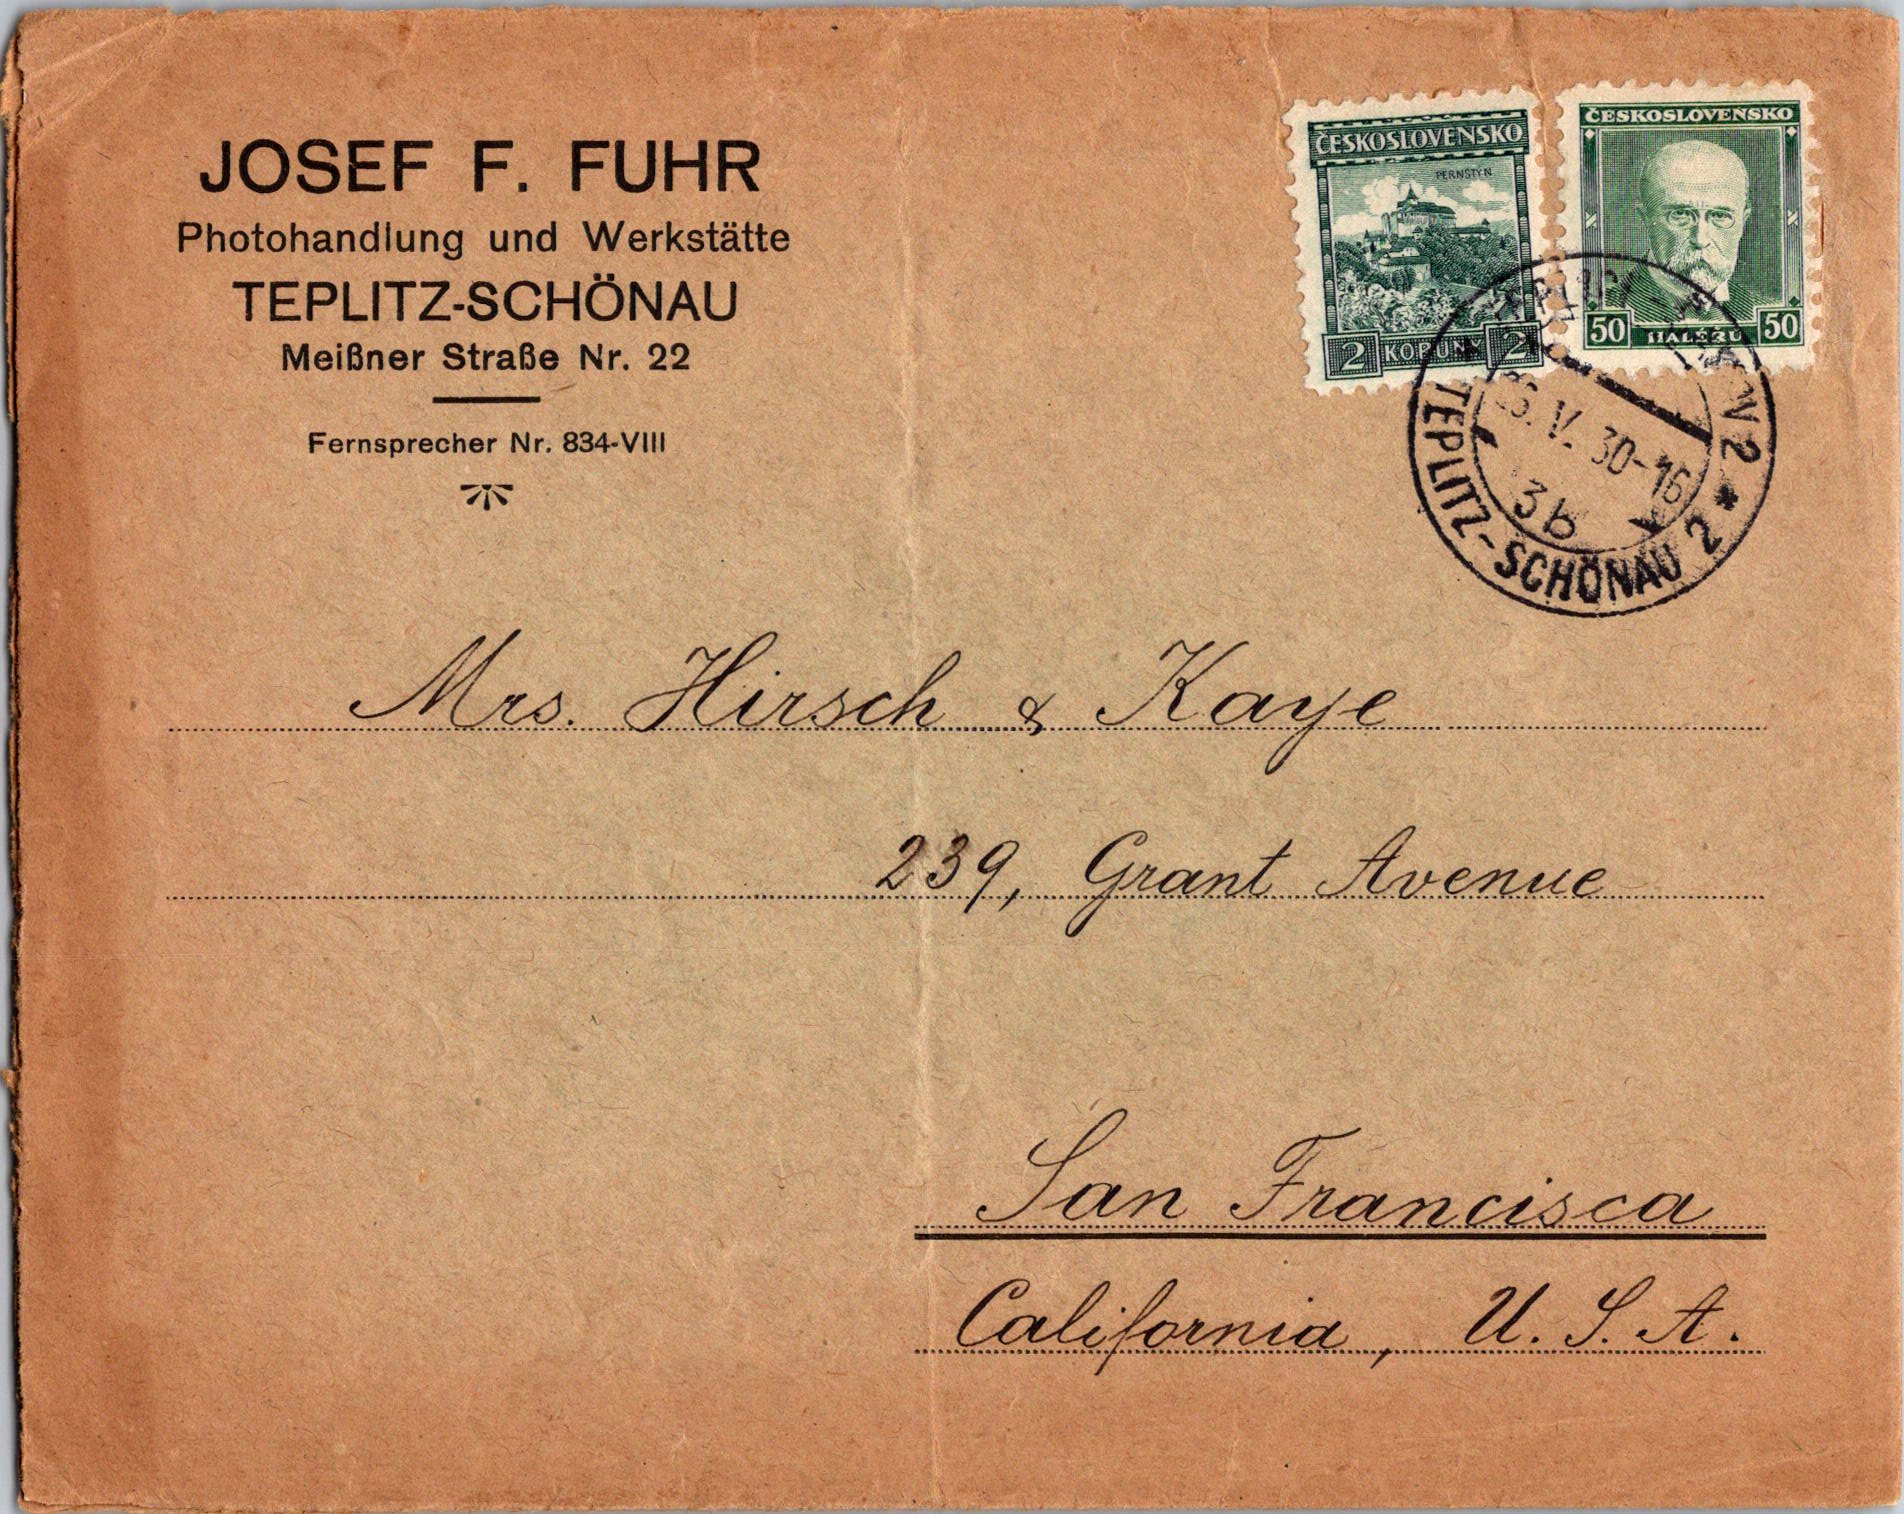 JOSEF F. FUHR
Photohandlung und Werkstätte
TEPLITZ-SCHÖNAU
Meißner Straße Nr. 22
Fernsprecher Nr. 834-VIII
ČESKOSLOVENSKO
PERNŠTÝN
2 KORUNY 2
ČESKOSLOVENSKO
50 HALÉŘŮ 50
V 2
V. 30-16
3b
TEPLITZ-SCHÖNAU 2
Mrs. Hirsch & Kaye
239, Grant Avenue
San Francisca
California, U. S. A.